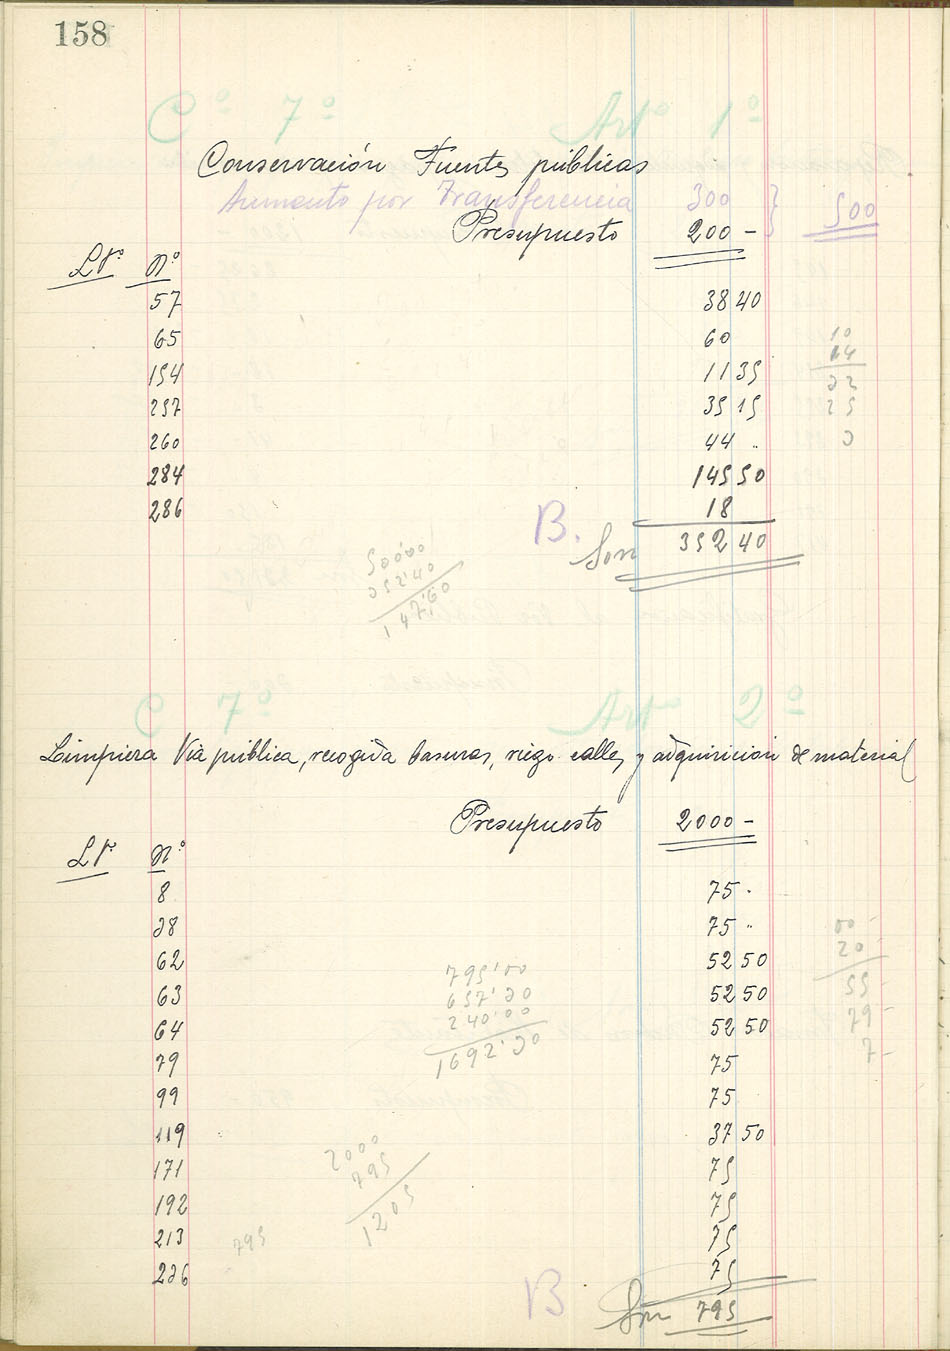 158
C° 7° Art° 1°
Conservación Fuentes públicas
Aumento por Transferencia 300 } 500
Presupuesto 200 -
Lº Nº
57 38 40
65 60
154 11 35
257 35 15
260 44 ..
284 145 50
286 18
B. Son 352 40
10
14
22
25
500'00
352'40
147'60
C 7° Art° 2°
Limpieza Via pública, recogida basuras, riego calles y adquisición de material
Presupuesto 2000 -
Lº Nº
8 75 .
28 75 ..
62 52 50
63 52 50
64 52 50
79 75
99 75
119 37 50
171 75
192 75
213 75
226 75
B Son 795
795'00
657'20
240'00
1692'20
20
55
79
7
2000
795
1205
795